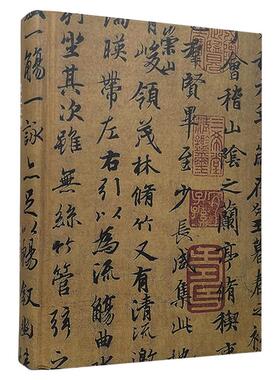 會稽山陰之蘭亭脩稧
群賢畢至少長咸集此
崇山
有峻領茂林脩竹又有清流
湍暎帶左右引以為流觴曲
列坐其次雖無絲竹管弦之
一觴一詠亦足以暢敘幽